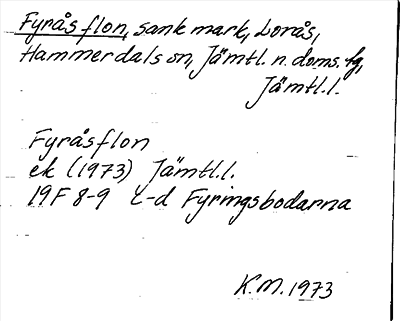 Fyrås flon, sank mark, Lorås,
Hammerdals sn, Jämtl. n. doms. fg,
Jämtl.l.
Fyråsflon
ek (1973) Jämtl.l.
19F 8-9 c-d Fyringsbodarna
K.M. 1973